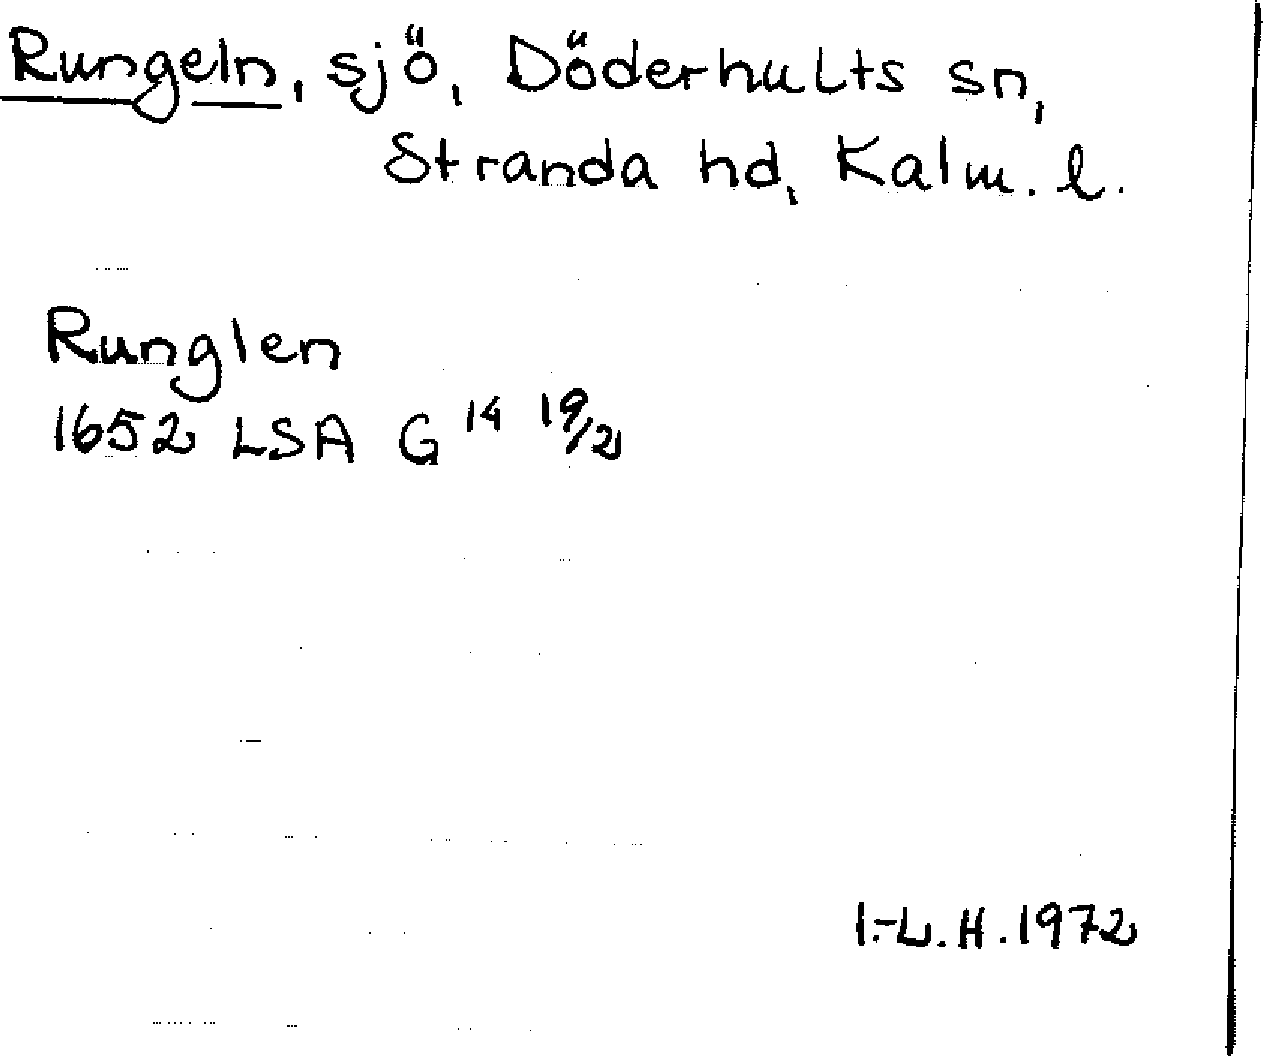 Rungeln, sjö, Döderhults sn,
Stranda hd, Kalm. l.
Runglen
1652 LSA G 14 19/21
I.-L.H. 1972